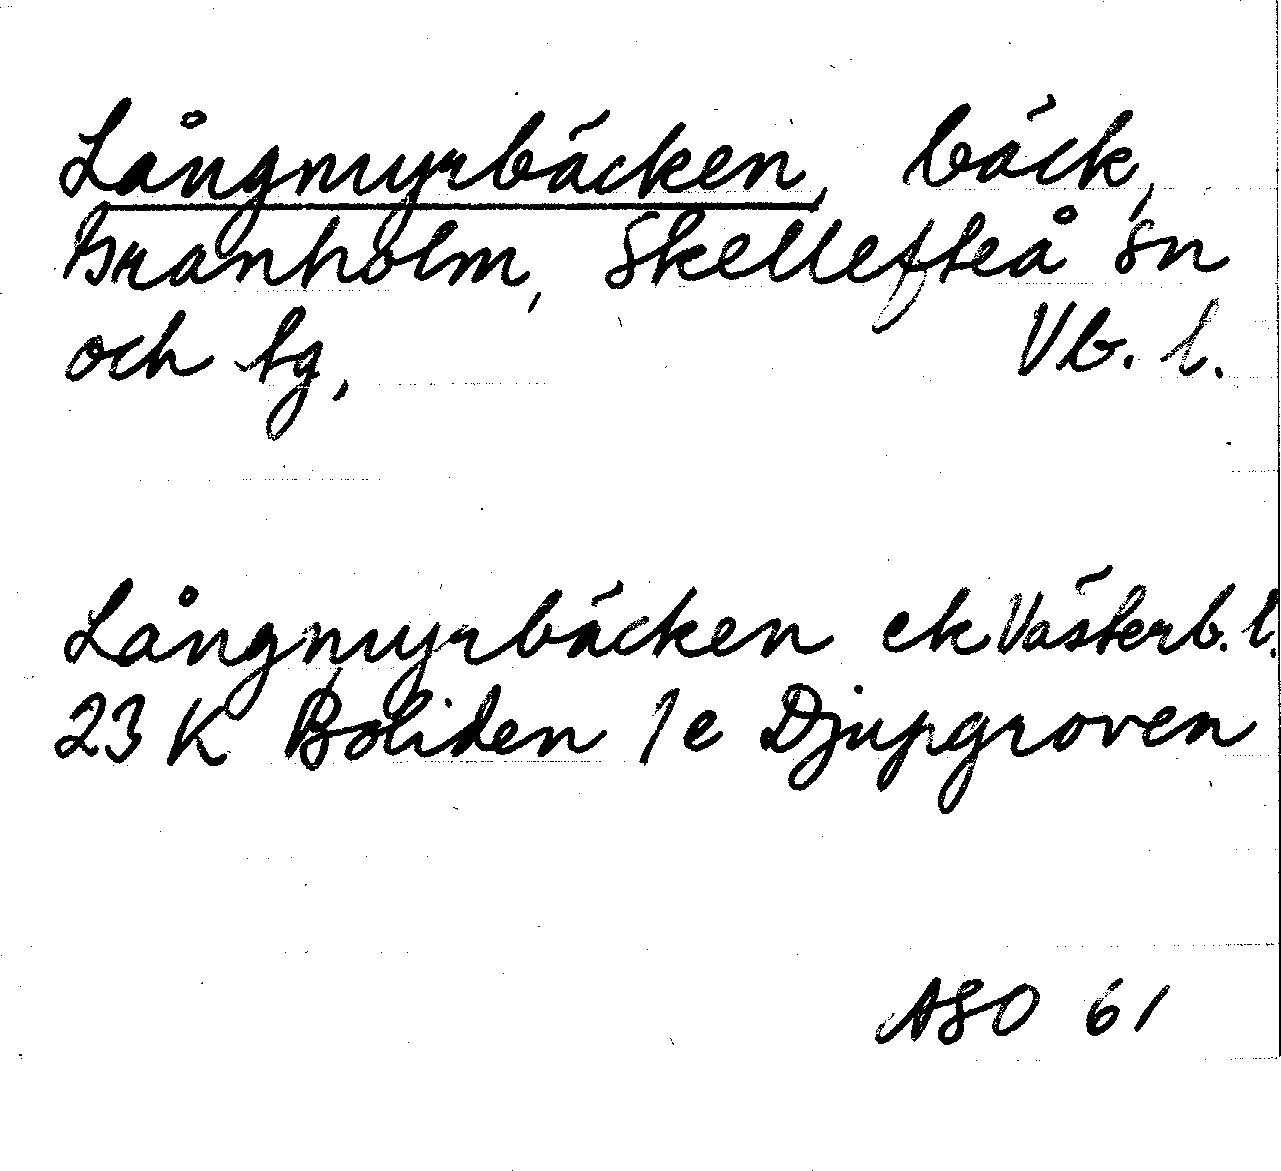 Långmyrbäcken, bäck,
Granholm, Skellefteå sn
och tg, Vb. l.
Långmyrbäcken ek Västerb. l.
23 K Boliden 1e Djupgroven
ASO 61